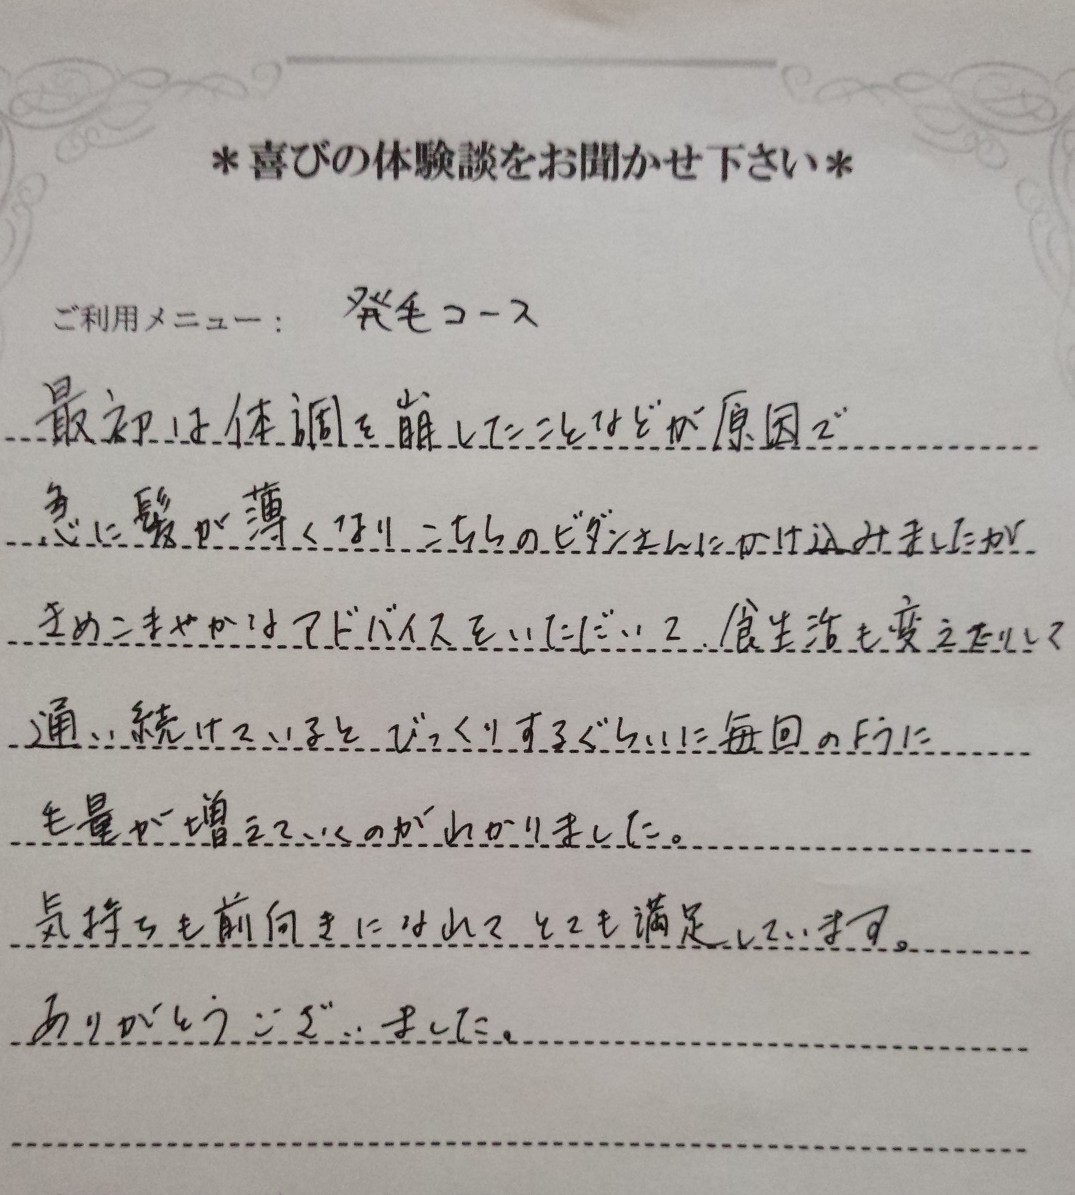 ＊喜びの体験談をお聞かせ下さい＊
ご利用メニュー： 発毛コース
最初は体調を崩したことなどが原因で
急に髪が薄くなりこちらのビダンさんにかけ込みましたが
きめこまやかなアドバイスをいただいて、食生活も変えたりして
通い続けているとびっくりするぐらいに毎回のように
毛量が増えていくのがわかりました。
気持ちも前向きになれてとても満足しています。
ありがとうございました。